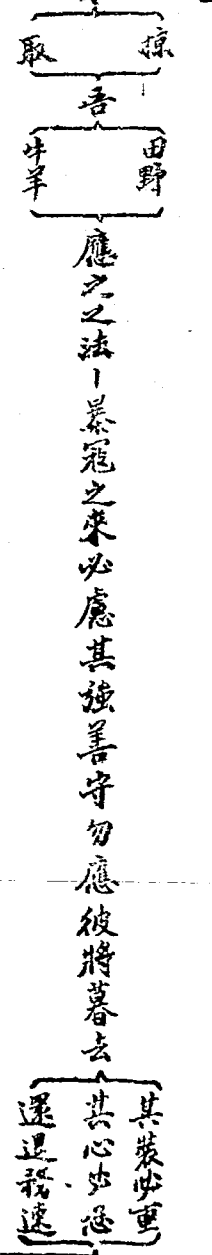 掠
取
吾
田野
牛羊
應之之法—暴寇之來必慮其強善守勿應彼將暮去
其裝必重
其心必恐
還退務速